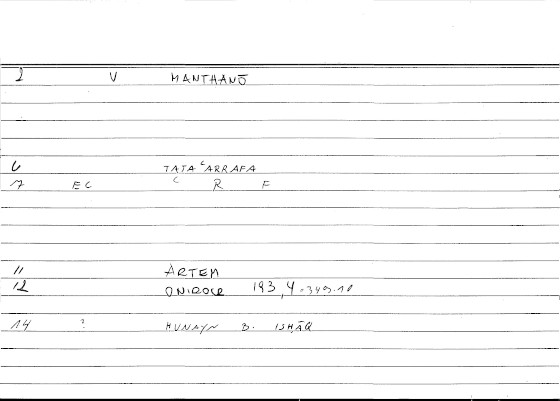 2 V MANTHANŌ
6 TATAʿARRAFA
7 EC ʿ R F
11 ARTEM
12 ONIROCR 193,4-349.10
14 ? HUNAYN B. ISḤĀQ